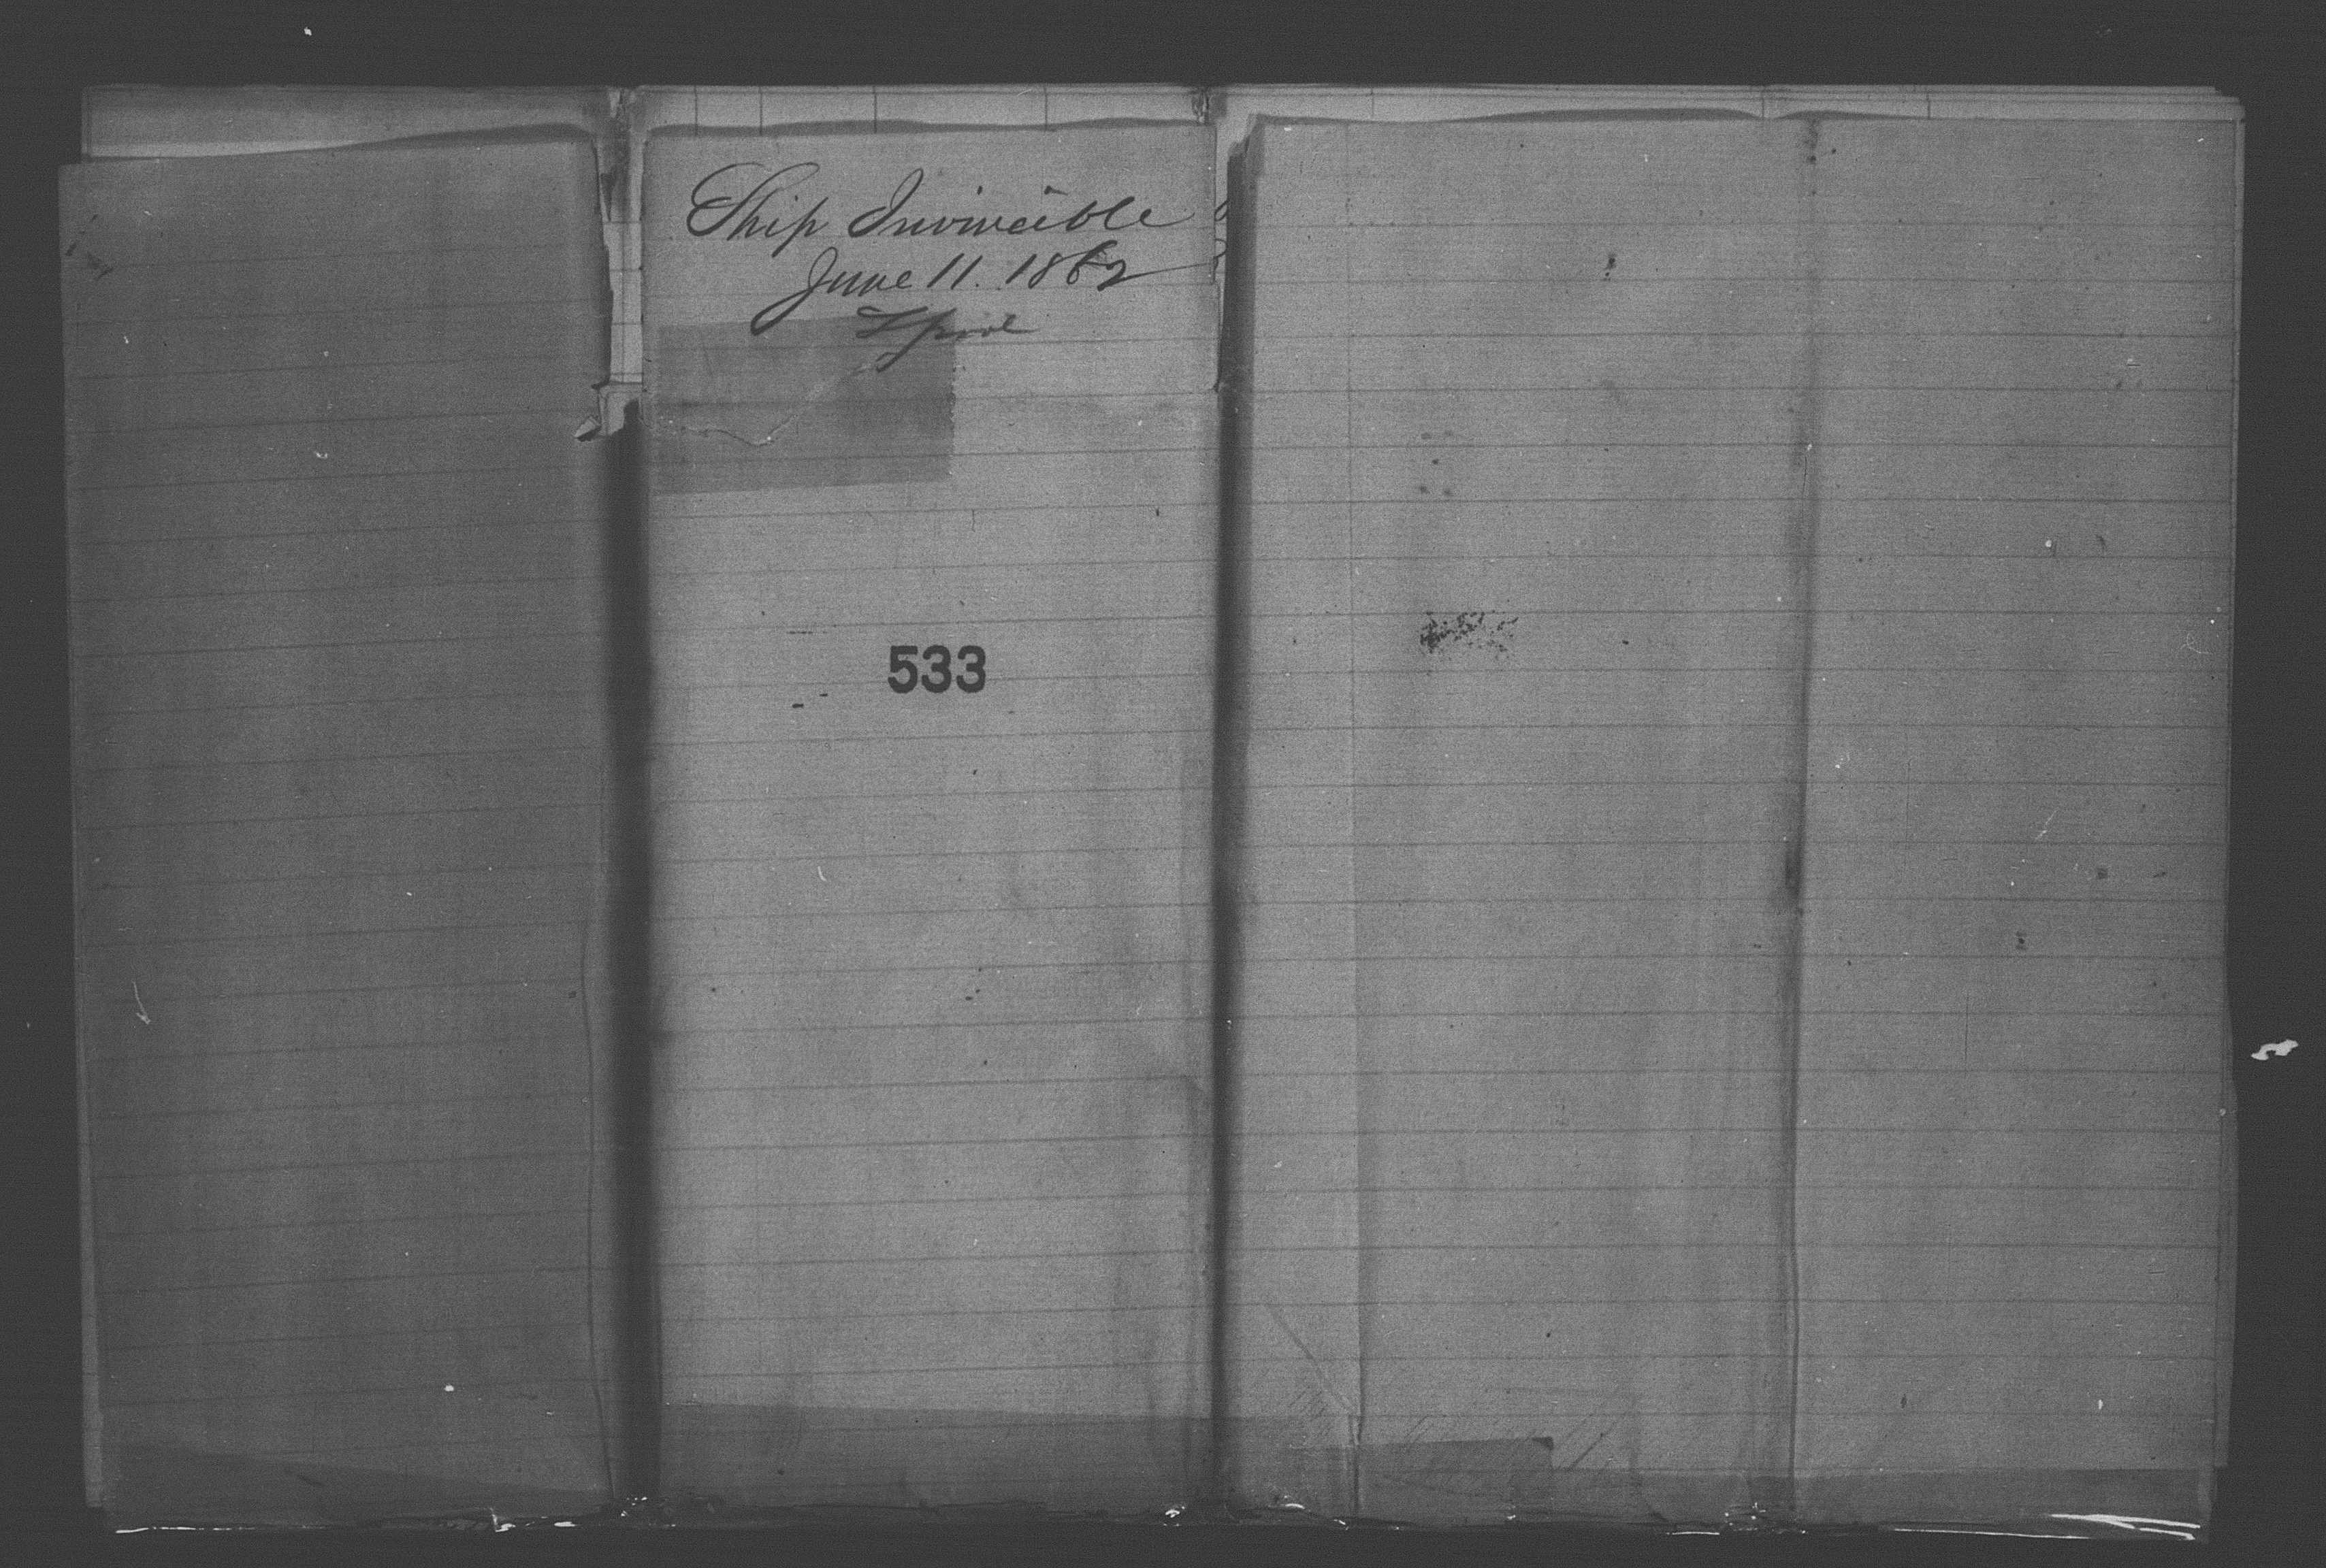 Ship Invincible
June 11. 1862
L pool
533